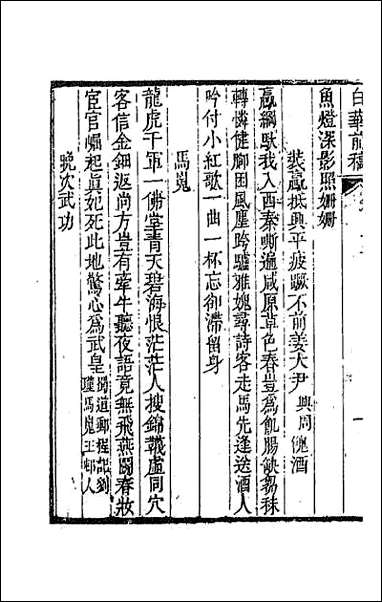 白華前稿
魚燈深影照姍姍
裝嬴抵興平疲蹶不前姜大尹興周餽酒
嬴綱馱我入西秦嘶遍咸原草色春豈爲飢腸缺芻秣
轉憐健腳困風塵吟驢雅媿尋詩客走馬先逢送酒人
吟付小紅歌一曲一杯忘卻滯畱身
馬嵬
龍虎千軍一佛堂青天碧海恨茫茫人搜錦韤虛同穴
客信金鈿返尚方豈有牽牛聽夜語竟無飛燕鬬春妝
宦官崛起眞妃死此地驚心爲武皇
蜀道郵程記劉
瓊馬嵬王郕人
晩次武功